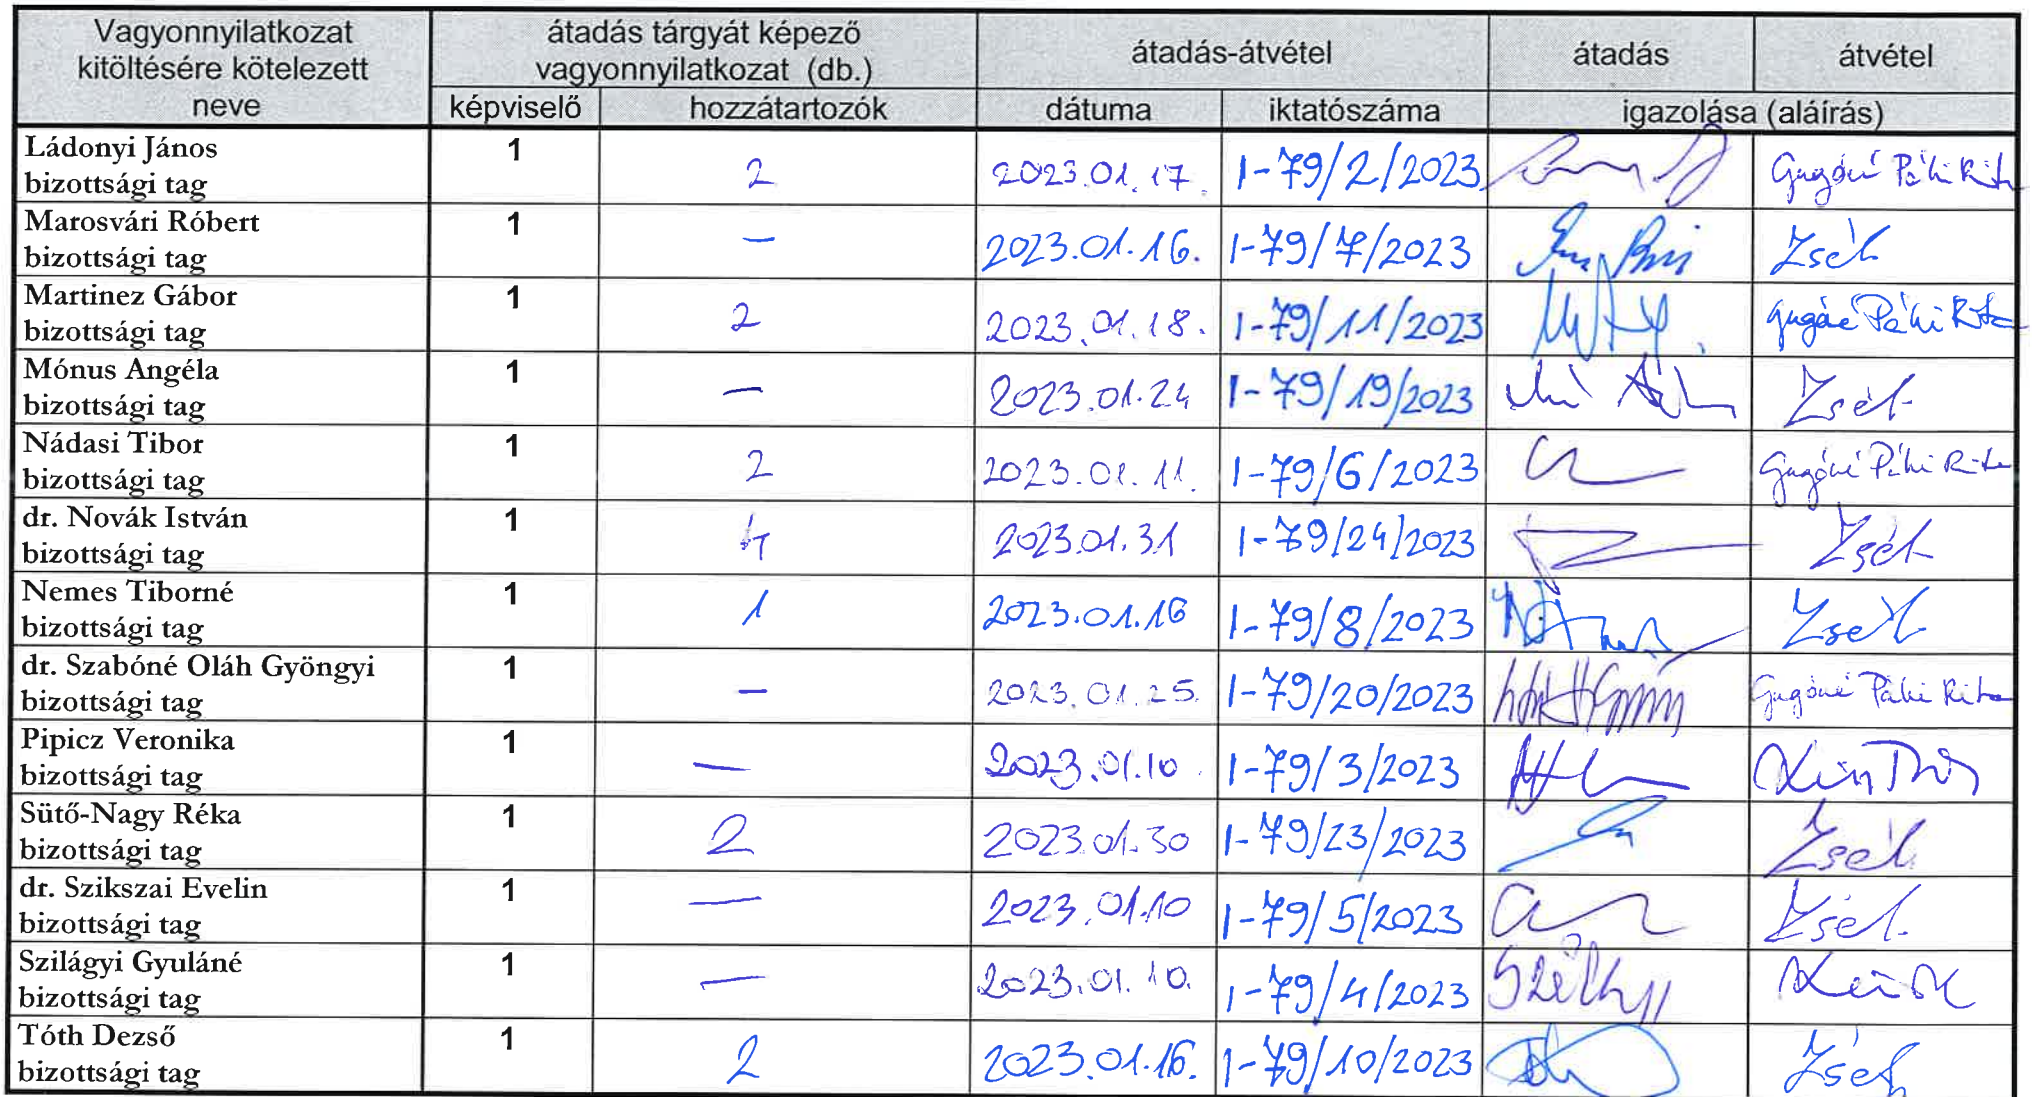 Vagyonnyilatkozat kitöltésére kötelezett neve
átadás tárgyát képező vagyonnyilatkozat (db.)
átadás-átvétel
átadás
átvétel
képviselő
hozzátartozók
dátuma
iktatószáma
igazolása (aláírás)
Ládonyi János
bizottsági tag
1 2 2023.01.17. I-79/2/2023 Gugóné Páhi Rita
Marosvári Róbert
bizottsági tag
1 – 2023.01.16. I-79/7/2023
Martinez Gábor
bizottsági tag
1 2 2023.01.18. I-79/11/2023 Gugóné Páhi Rita
Mónus Angéla
bizottsági tag
1 – 2023.01.24 I-79/19/2023
Nádasi Tibor
bizottsági tag
1 2 2023.01.11. I-79/6/2023 Gugóné Páhi Rita
dr. Novák István
bizottsági tag
1 4 2023.01.31 I-79/24/2023
Nemes Tiborné
bizottsági tag
1 1 2023.01.16 I-79/8/2023
dr. Szabóné Oláh Gyöngyi
bizottsági tag
1 – 2023.01.25. I-79/20/2023 Gugóné Páhi Rita
Pipicz Veronika
bizottsági tag
1 – 2023.01.10. I-79/3/2023
Sütő-Nagy Réka
bizottsági tag
1 2 2023.01.30 I-79/23/2023
dr. Szikszai Evelin
bizottsági tag
1 – 2023.01.10 I-79/5/2023
Szilágyi Gyuláné
bizottsági tag
1 – 2023.01.10. I-79/4/2023
Tóth Dezső
bizottsági tag
1 2 2023.01.16. I-79/10/2023